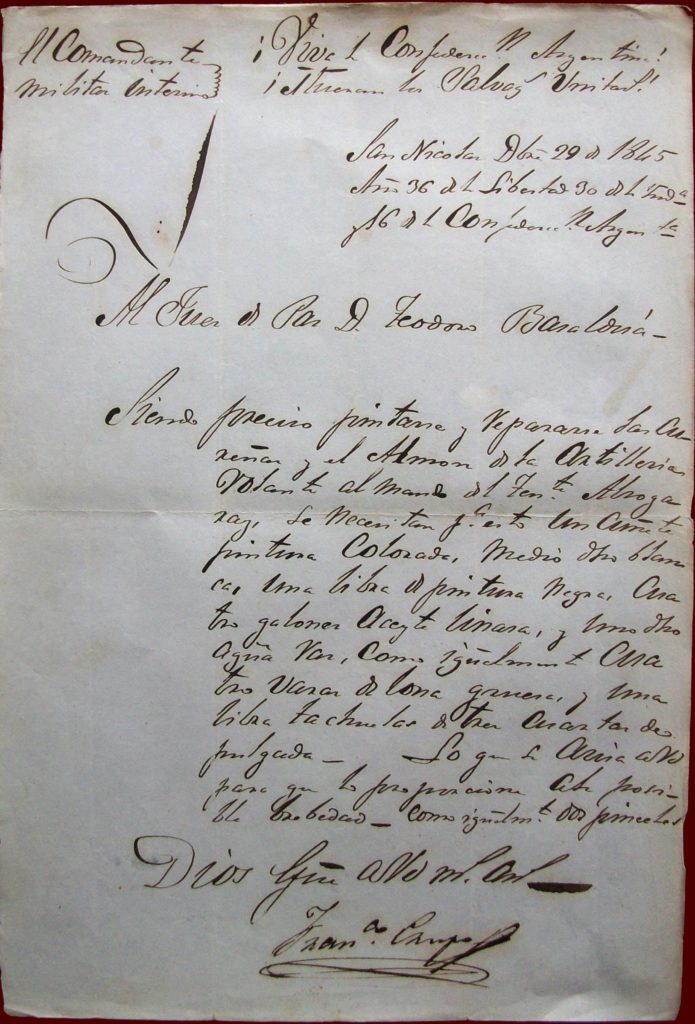 El Comandante
militar interino
¡Viva la Confederac.n Argentina!
¡Mueran los Salvag.s Unitar.s!
San Nicolas Dbre 29 de 1845
Año 36 de la Libertad 30 de la Ynd.a
y 16 de la Confederac.n Argen.na
Al Juez de Paz D. Teodoro Basaldúa
Siendo preciso pintarse y repararse las cu-
reñas y el Armon de la Artilleria
Volante al mando del Ten.te
se necesitan p.a esto un cuñete
pintura Colorada, medio dho blan
ca, una libra de pintura negra, Cua
tro galones Aceyte linasa, y uno dho
Agüa Ras, como igüalmente Cua
tro varas de lona gruesa, y una
libra tachuelas de tres cuartas de
pulgada _ Lo que se avisa a Vd
para que lo proporcione a la posi-
ble brebedad _ como igüalm.te dos pinceles
Dios Gũe a Vd m.s a.s
Fran.co Campos